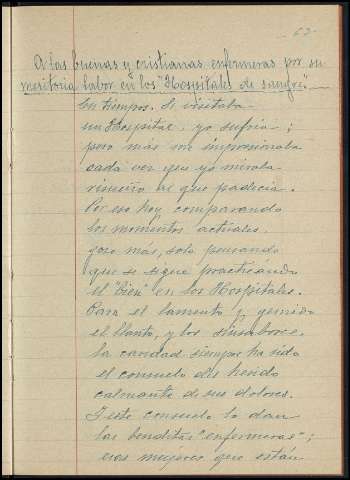 63
A las buenas y cristianas enfermeras por su
meritoria labor en los "Hospitales de sangre".
En tiempos. Si visitaba
un Hospital yo sufría;
pero más me impresionaba
cada vez que yo miraba
risueño al que padecía.
Por eso hoy comparando
los momentos actuales,
gozo más, solo pensando
que se sigue practicando
el "bien" en los Hospitales.
Para el lamento y gemido
el llanto, y los sinsabores.
la caridad siempre ha sido
el consuelo del herido
calmante de sus dolores.
Y este consuelo lo dan
las benditas "enfermeras";
esas mujeres que están